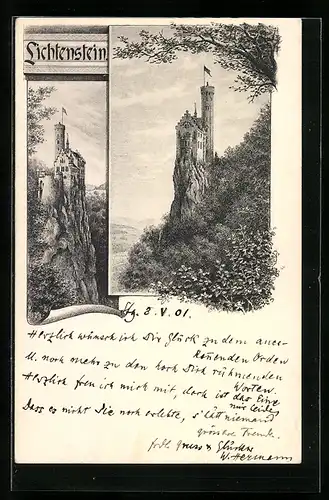 Lichtenstein
Stg. 8. V. 01.
Herzlich wünsch ich Dir Glück zu dem aner-
kennenden Orden
u. noch mehr zu den hoch Dich rühmenden
Worten.
Herzlich freu ich mich mit, doch ist das Eine
nur leider
Dass es nicht die noch erlebte, s'lätt niemand
grössere Freude.
Gruss &
W. Hermann